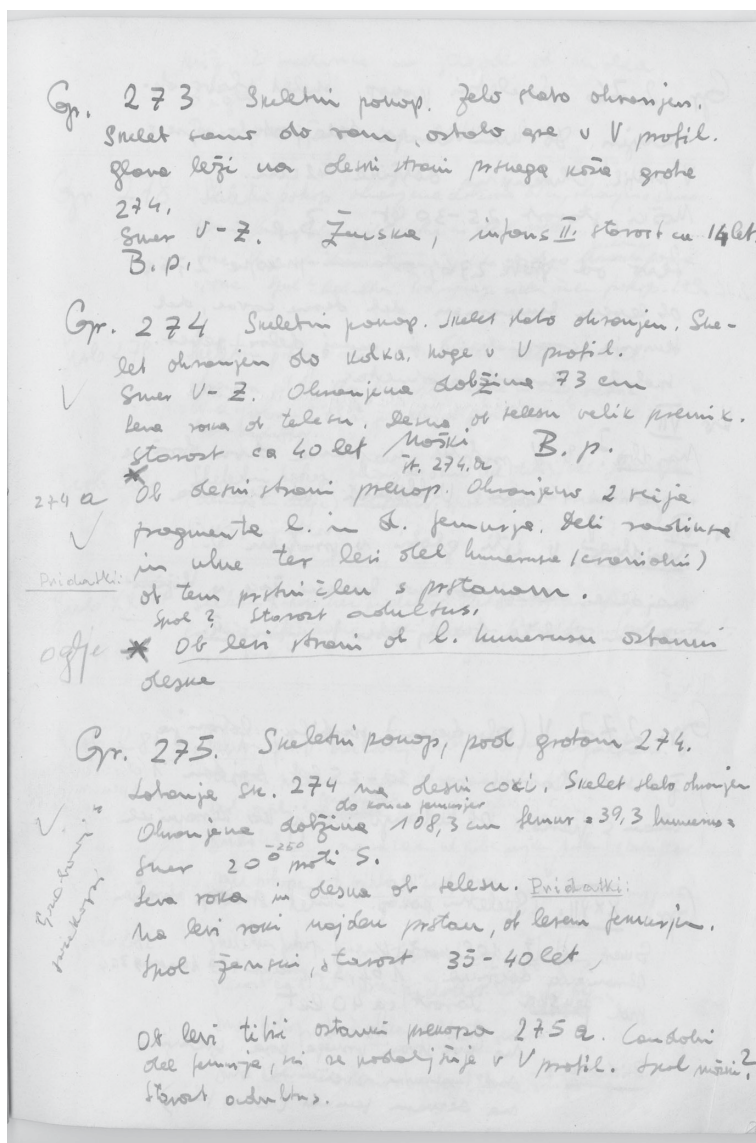 Gr. 273 Skeletni pokop. Zelo slabo ohranjen.
Skelet samo do ram, ostalo gre v V profil.
glava leži na desni strani prsnega koša groba
274.
Smer V-Z. Ženska, infans II. starost ca 14 let.
B.p.
Gr. 274 Skeletni pokop. Skelet slabo ohranjen. Ske-
let ohranjen do kolka, noge v V profil.
Smer V-Z. Ohranjena dolžina 73 cm
Leva roka ob telesu, desna ob telesu velik premik.
Starost ca 40 let Moški B.p.
št. 274.a
274 a Ob desni strani prekop. Ohranjeno 2 večja
fragmenta l. in d. femurja. Deli radiusa
in ulne ter levi del humerusa (cranialni)
Pridatki: ob tem prstni člen s prstanom.
Spol ? Starost adultus.
oglje Ob levi strani ob l. humerusu ostanki
deske
Gr. 275. Skeletni pokop, pod grobom 274.
Lobanja sk. 274 na desni coxi. Skelet slabo ohranjen
do konca femurjev
Ohranjena dolžina 108,3 cm femur = 39,3 humerus =
Smer 20° -250 proti S.
Leva roka in desna ob telesu. Pridatki:
Na levi roki najden prstan, ob levem femurju.
Spol ženski, starost 35-40 let,
Ob levi tibii ostanki prekopa 275 a.
del femurja, ki se nadaljuje v V profil. Spol moški?
Starost adultus.